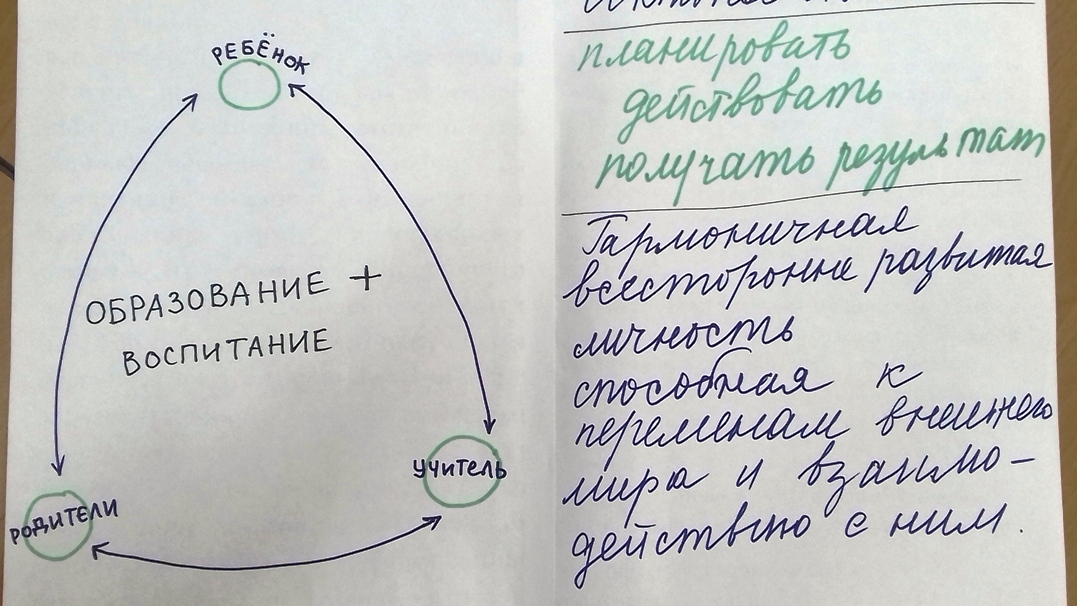 РЕБЁНОК
ОБРАЗОВАНИЕ +
ВОСПИТАНИЕ
УЧИТЕЛЬ
РОДИТЕЛИ
планировать
действовать
получать результат
Гармоничная
всесторонне развитая
личность
способная к
переменам внешнего
мира и взаимо-
действию с ним.